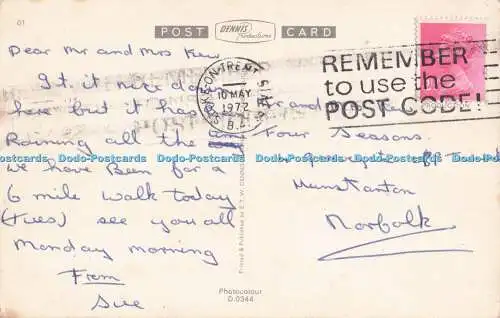 01
POST CARD
DENNIS
Productions
STOKE-ON-TRENT
STAFFS
10 MAY
1972
B
REMEMBER
to use the
POST CODE!
Dear Mr and Mrs Kew
It. it nice day
here but it has
Raining all the
we have Been for a
6 mile walk today
(Tues) see you all
Monday morning
From
Sue
Mr and Mrs
Four Seasons
Hunstanton
Norfolk
Printed & Published by E. T. W. DENNIS
Photocolour
D.0344
Dodo-Postcards Dodo-Postcards Dodo-Postcards Dodo-Postcards Dodo-Postcards Dodo-Postcards